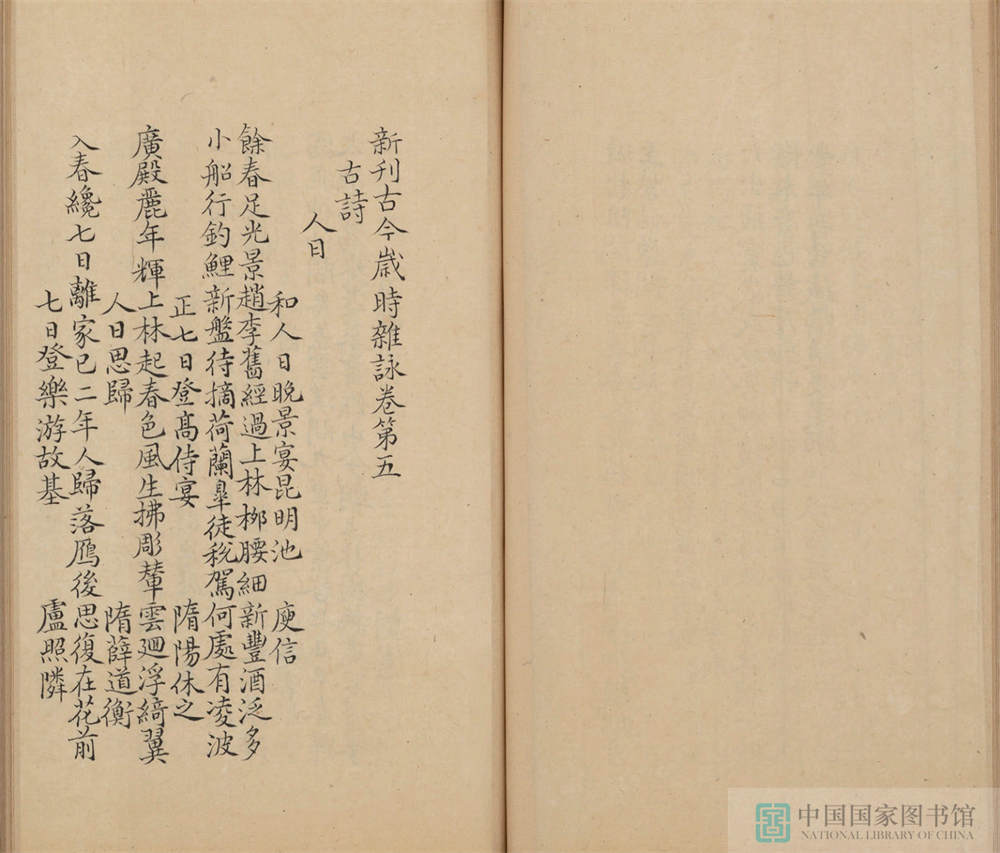 新刊古今歲時雜詠卷第五
古詩
人日
和人日晚景宴昆明池 庾信
餘春足光景趙李舊經過上林栁腰細新豐酒泛多
小船行釣鯉新盤待摘荷蘭臯徒稅駕何處有凌波
正七日登髙侍宴 隋陽休之
廣殿麗年輝上林起春色風生拂彫輦雲廻浮綺翼
人日思歸 隋薛道衡
入春纔七日離家已二年人歸落鴈後思復在花前
七日登樂游故基 盧照隣
中国国家图书馆
NATIONAL LIBRARY OF CHINA